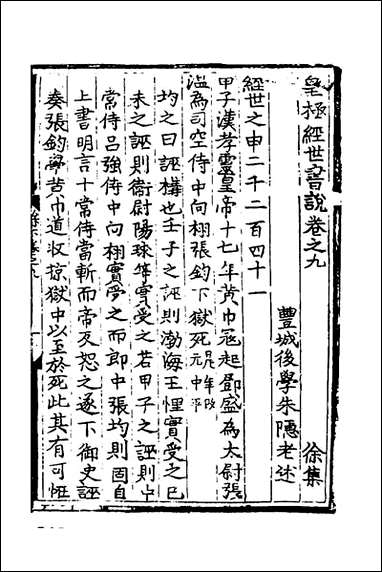 皇極經世書說卷之九
豐城後學朱隱老述　徐集
經世之申二千二百四十一
甲子漢孝靈皇帝十七年黃巾冦起鄧盛為太尉張
溫為司空侍中向栩張鈞下獄死是年改元中平
均之曰誣構也壬子之誣則渤海王悝實受之巳
未之誣則衛尉陽球等實受之若甲子之誣則中
常侍呂強侍中向栩實受之而郎中張均則固自
上書明言十常侍當斬而帝反怒之遂下御史誣
奏張鈞學黃巾道收掠獄中以至於死此其有可怪